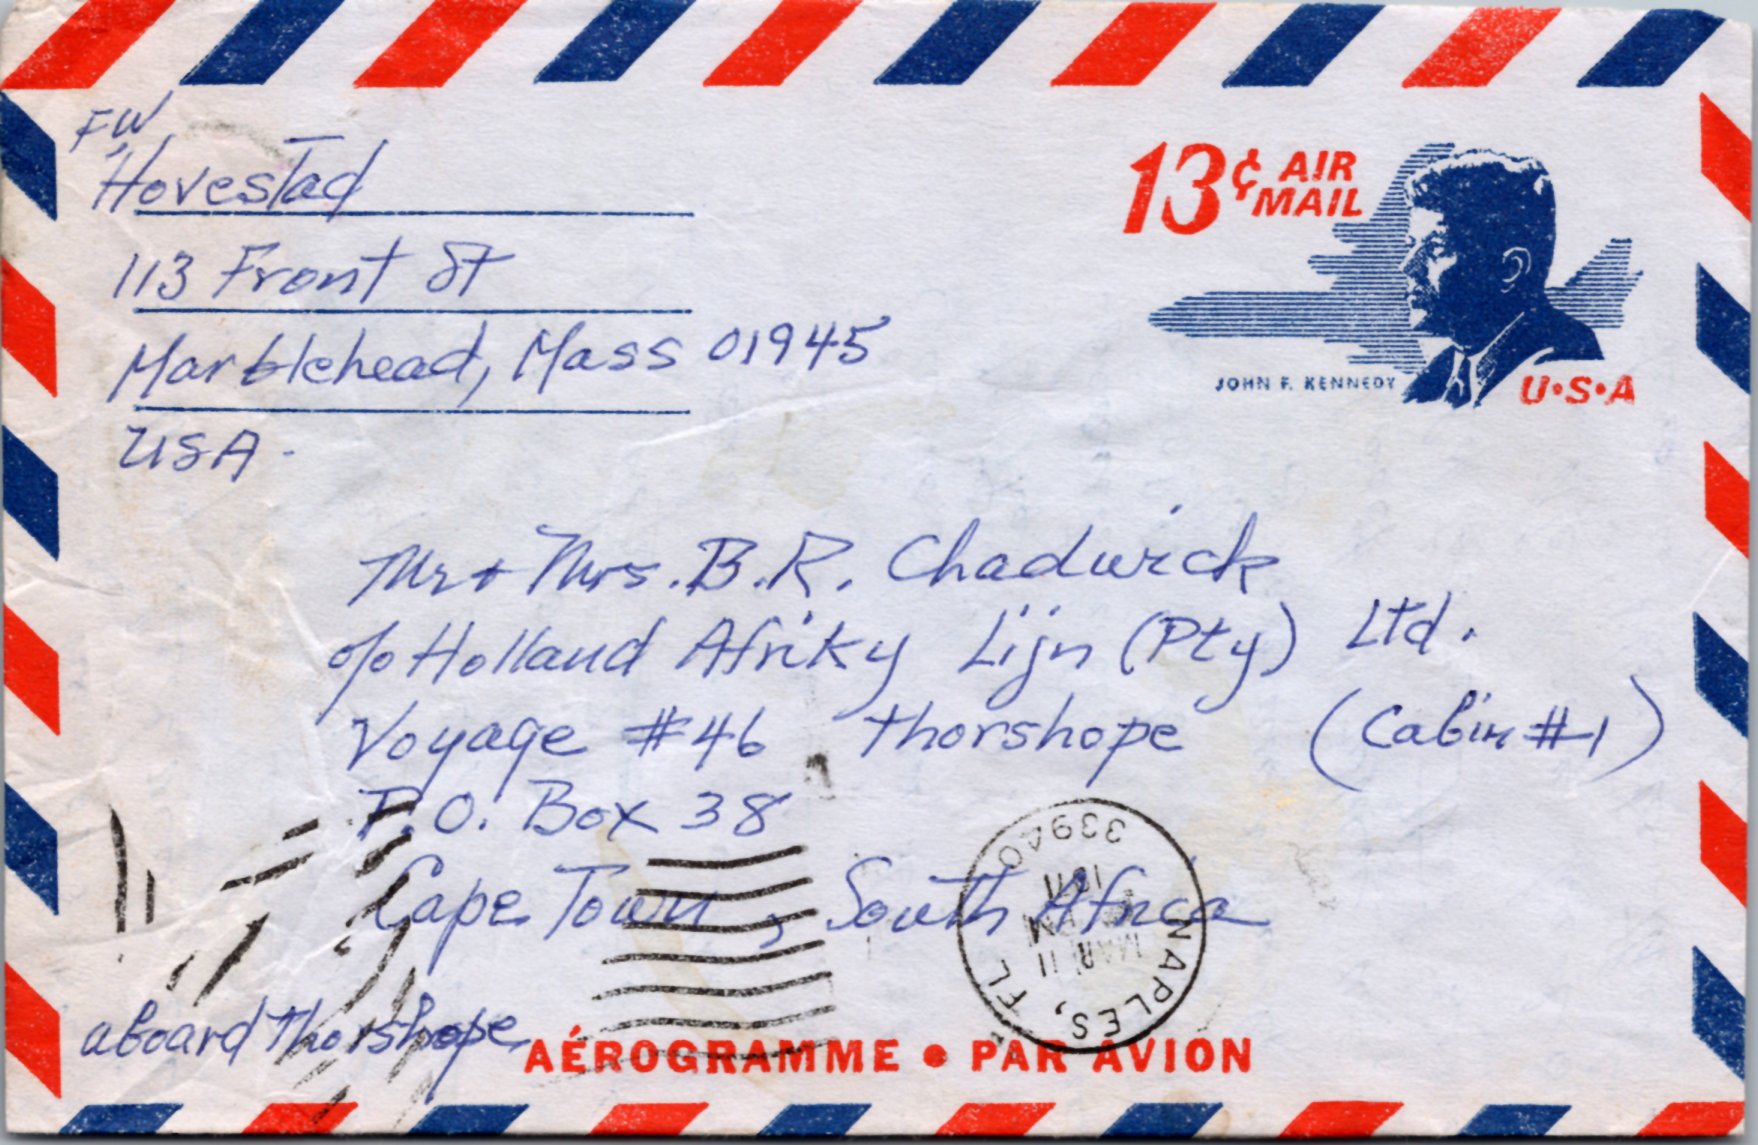 FW
Hovestad
113 Front St
Marblehead, Mass 01945
USA.
13¢ AIR
MAIL
JOHN F. KENNEDY
U·S·A
Mr + Mrs. B.R. Chadwick
c/o Holland Afriky Lijn (Pty) Ltd.
Voyage #46 Thorshope (Cabin #1)
P.O. Box 38
Cape Town, South Africa
NAPLES, FL
33940
MAR 11
PM
aboard Thorshope
AÉROGRAMME • PAR AVION